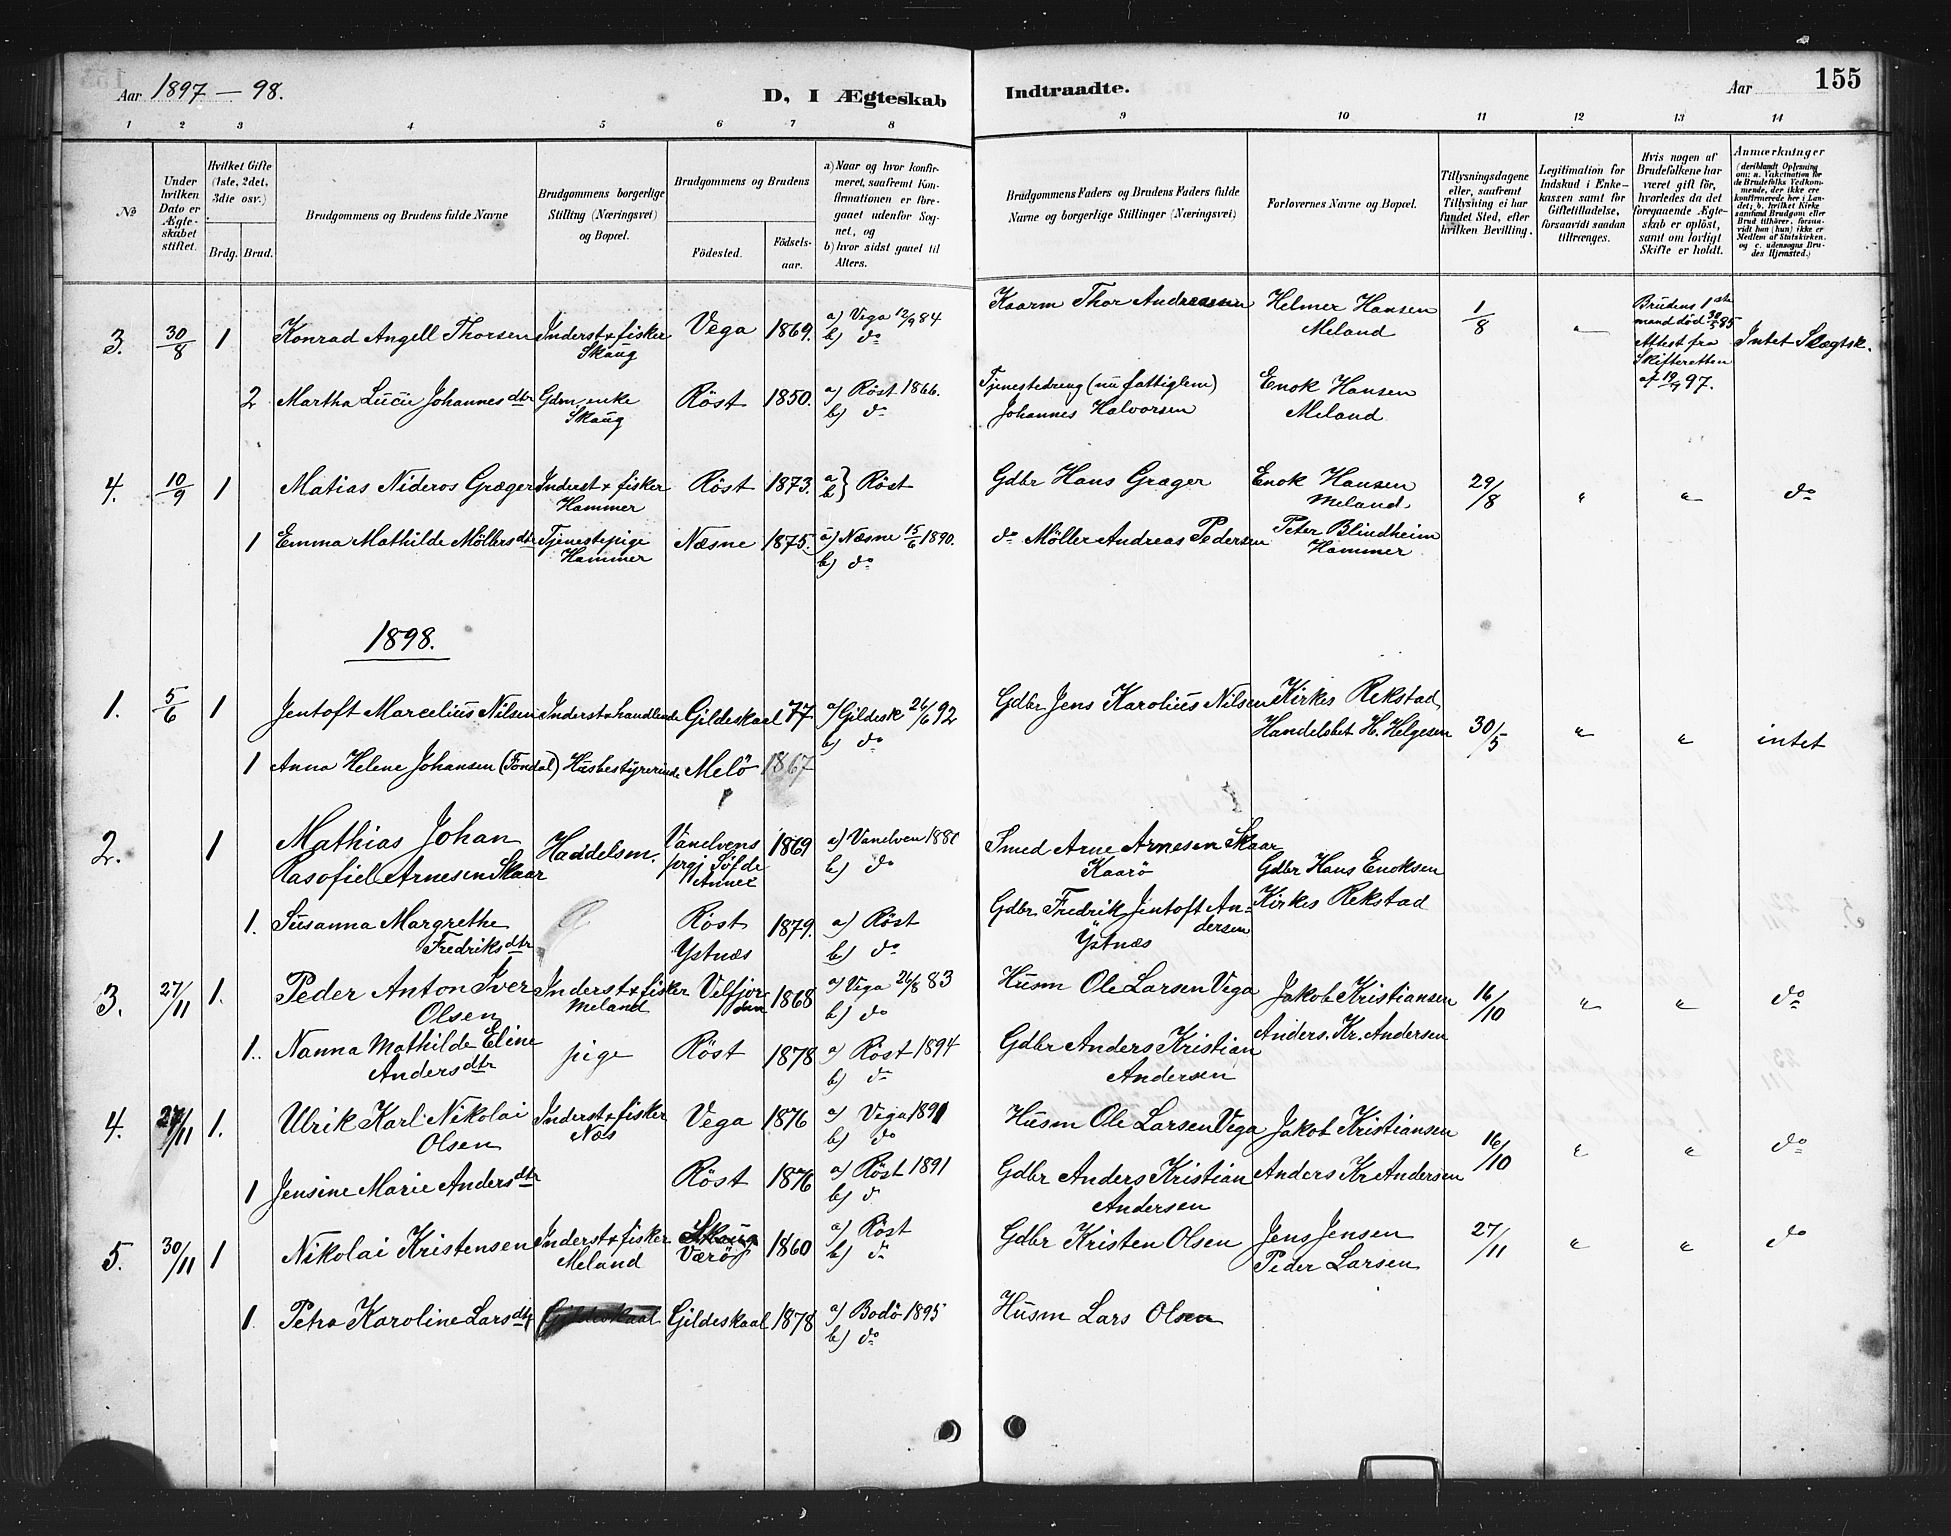 Aar 1897 – 98.
D, I Ægteskab Indtraadte.
Aar 155
1 2 3 4 5 6 7 8 9 10 11 12 13 14
№
Under hvilken Dato er Ægteskabet stiftet.
Hvilket Gifte (1ste, 2det, 3die osv.)
Brdg. Brud.
Brudgommens og Brudens fulde Navne
Brudgommens borgerlige Stilling (Næringsvei) og Bopæl.
Brudgommens og Brudens
Fødested.
Fødselsaar.
a) Naar og hvor konfirmeret, saafremt Konfirmationen er foregaaet udenfor Sognet, og
b) hvor sidst gaaet til Alters.
Brudgommens Faders og Brudens Faders fulde Navne og borgerlige Stillinger (Næringsvei)
Forlovernes Navne og Bopæl.
Tillysningsdagene eller, saafremt Tillysning ei har fundet Sted, efter hvilken Bevilling.
Legitimation for Indskud i Enkekassen samt for Giftetilladelse, forsaavidt saadan tiltrænges.
Hvis nogen af Brudefolkene har været gift før, hvorledes da det foregaaende Ægteskab er opløst, samt om lovligt Skifte er holdt.
Anmærkninger
(deriblandt Oplysning om: a. Vakcination for Brudefolks Vedkommende, der ikke ere konfirmerede her i Landet; b. hvilket Kirkesamfund Brudgom eller Brud tilhører, forsaavidt han (hun) ikke er Medlem af Statskirken, og c. udensogns Brudes Hjemsted.)
3. 30/8 1 Konrad Angell Thorsen Inderst + fisker Skaug Vega 1869. a) Vega 12/9 84 b) do Kaarm Thor Andreasen Helmer Hansen Meland 1/8 " Brudens 1ste mand død 30/5 85 Attest fra Skifteretten af 19/7 97. Intet Slægtsk.
2 Martha Lucie Johannesdtr Gdm. enke Skaug Röst 1850. a) Röst 1866. b) do Tjenestedreng (nu fattiglem) Johannes Halvorsen Enok Hansen Meland
4. 10/9 1 Matias Nideros Græger Inderst + fisker Hammer Röst 1873. a b} Röst Gdbr Hans Græger Enok Hansen Meland. 29/8 " " do
1 Emma Mathilde Möllersdtr Tjenestepige Hammer Næsne 1875. a) Næsne 15/6 1890. b) do do Möller Andreas Pedersen Peter Blindheim Hammer
1898.
1. 5/6 1 Jentoft Marcelius Nilsen Inderst + handlende Gildeskaal 77 a) Gildesk 26/6 92 b) do Gdbr Jens Karolius Nilsen Kirkes Rekstad Handelsbet H. Helgesen 30/5 " " intet
1 Anna Helene Johansen (Fondal) Husbestyrerinde Melö 1867
2. 1 Mathias Johan Rasofiel Arnesen Skaar Haddelsm. Vanelvens prgj Søfde Annex 1869 a) Vanelven 1880 b) do Smed Arne Arnesen Skaar Kaarö Gdbr Hans Enoksen
1. Susanna Margrethe Fredriksdtr Röst Ystnæs 1879. a) Röst b) do Gdbr Fredrik Jentoft Andersen Ystnæs Kirkes Rekstad
3. 27/11 1. Peder Anton Iver Olsen Inderst + fisker Meland Velfjorden 1868 a) Vega 26/8 83 b) do Husm Ole Larsen Vega Jakob Kristiansen 16/10 " " do
1. Nanna Mathilde Eline Andersdtr pige Röst 1878 a) Röst 1894 b) do Gdbr Anders Kristian Andersen Anders. Kr. Andersen
4. 27/11 1. Ulrik Karl Nikolai Olsen Inderst + fisker Næs Vega 1876 a) Vega 1891 b) do Husm Ole Larsen Vega Jakob Kristiansen 16/10 " " do
1 Jensine Marie Andersdtr Röst 1876 a) Röst 1891 b) d Gdbr Anders Kristian Andersen Anders Kr Andersen
5. 30/11 1 Nikolai Kristensen Inderst + fisker Meland Skaug Værö 1860 a) Röst b) do Gdbr Kristen Olsen Jens Jensen Peder Larsen 27/11 " " do
1. Petra Karoline Larsdtr Gildeskaal Gildeskaal 1878 a) Bodö 1895 b) do Husm Lars Olsen